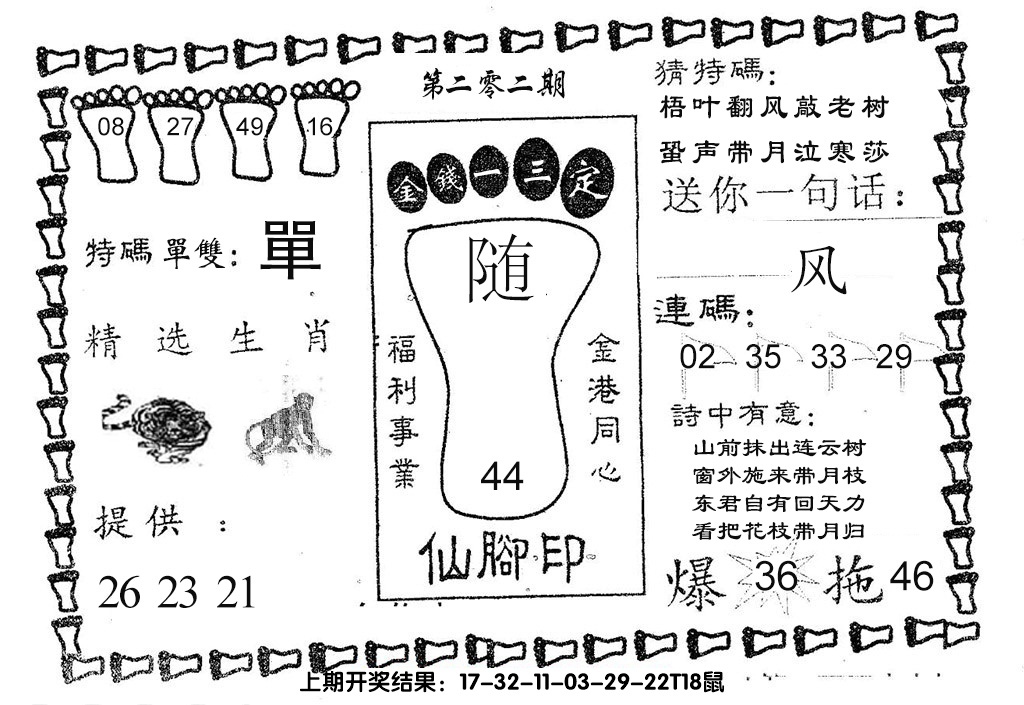 第二零二期
08 27 49 16
特碼單雙：單
精选生肖
提供：
26 23 21
金錢一三定
随
福利事業
金港同心
44
仙腳印
猜特碼：
梧叶翻风敲老树
蛩声带月泣寒莎
送你一句话：
风
連碼：
02 35 33 29
詩中有意：
山前抹出连云树
窗外施来带月枝
东君自有回天力
看把花枝带月归
爆 36 拖 46
上期开奖结果：17-32-11-03-29-22T18鼠